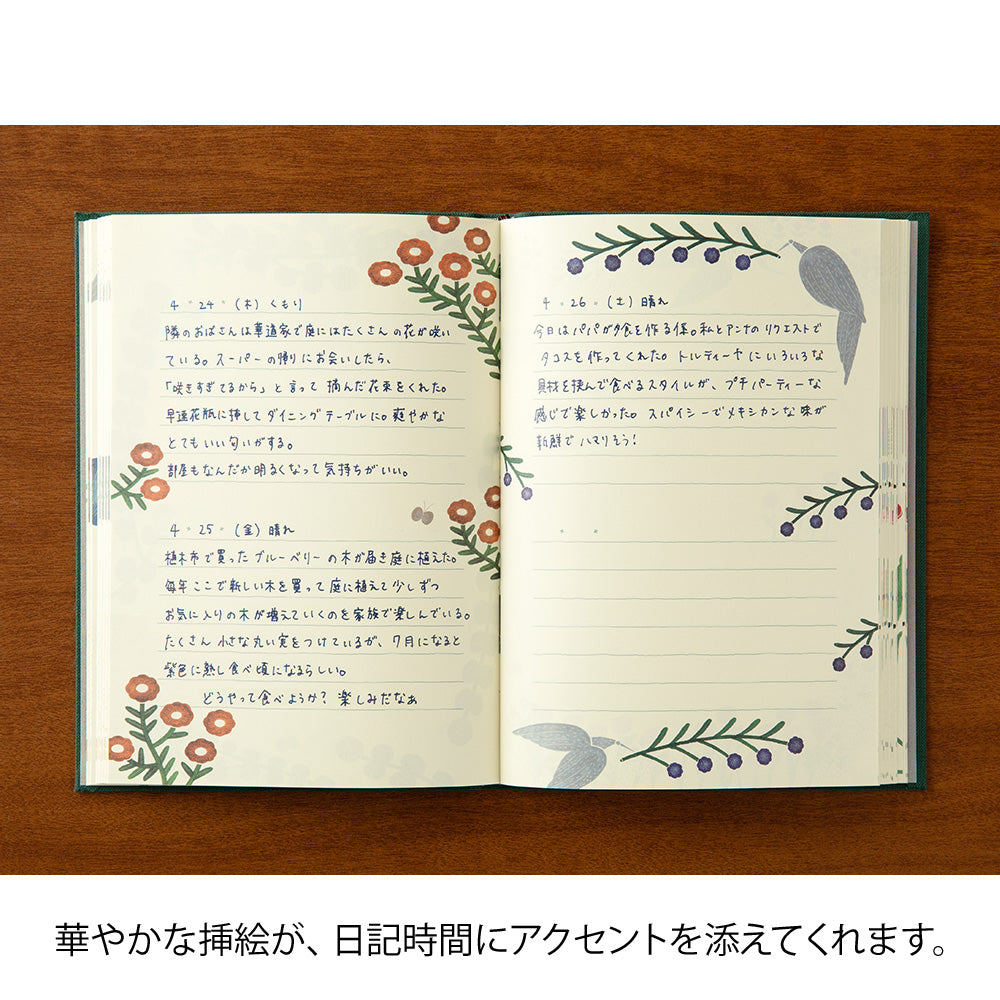 4 ・ 24 ・ (木) くもり
隣のおばさんは華道家で庭にはたくさんの花が咲い
ている。スーパーの帰りにお会いしたら、
「咲きすぎてるから」と言って 摘んだ花束をくれた。
早速花瓶に挿してダイニングテーブルに。爽やかな
とてもいい匂いがする。
部屋もなんだか明るくなって気持ちがいい。
4 ・ 25 ・ (金) 晴れ
植木市で買ったブルーベリーの木が届き庭に植えた。
毎年ここで新しい木を買って庭に植えて少しずつ
お気に入りの木が増えていくのを家族で楽しんでいる。
たくさん小さな丸い実をつけているが、7月になると
紫色に熟し食べ頃になるらしい。
どうやって食べようか? 楽しみだなぁ
4 ・ 26 ・ (土) 晴れ
今日はパパが夕食を作る係。私とアンナのリクエストで
タコスを作ってくれた。トルティーヤにいろいろな
具材を挟んで食べるスタイルが、プチパーティーな
感じで楽しかった。スパイシーでメキシカンな味が
新鮮でハマりそう!
華やかな挿絵が、日記時間にアクセントを添えてくれます。